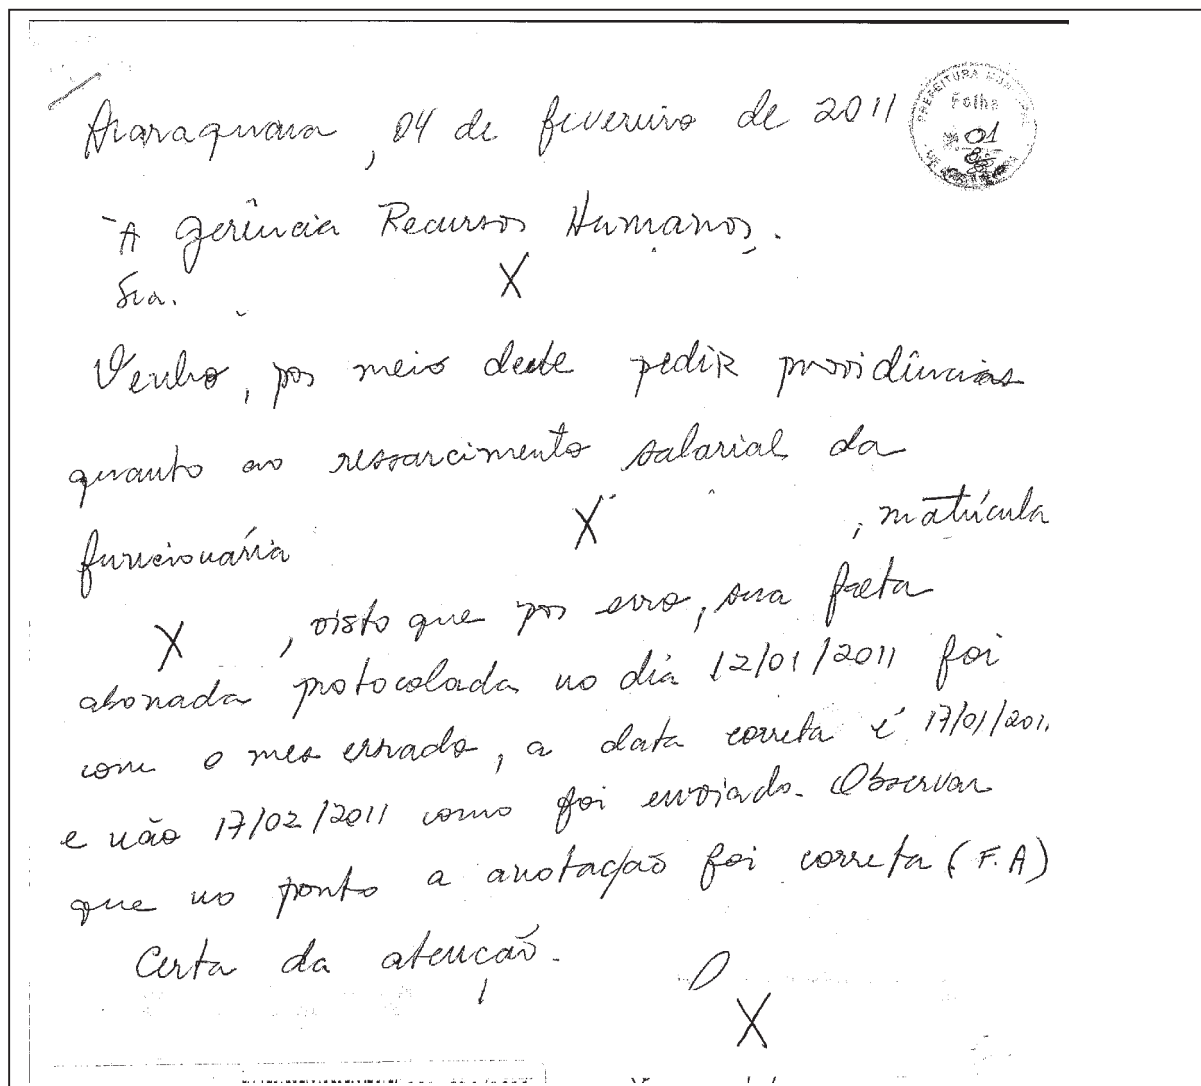 Araraquara, 04 de fevereiro de 2011
PREFEITURA MUNICIPAL
Folha
nº 01
À Gerência Recursos Humanos.
Sra. X
Venho, por meio deste pedir providências
quanto ao ressarcimento salarial da
funcionária X, matrícula
X, visto que por erro, sua falta
abonada protocolada no dia 12/01/2011 foi
com o mes errado, a data correta é 17/01/2011
e não 17/02/2011 como foi enviado. Observar
que no ponto a anotação foi correta (F.A)
Certa da atenção.
X